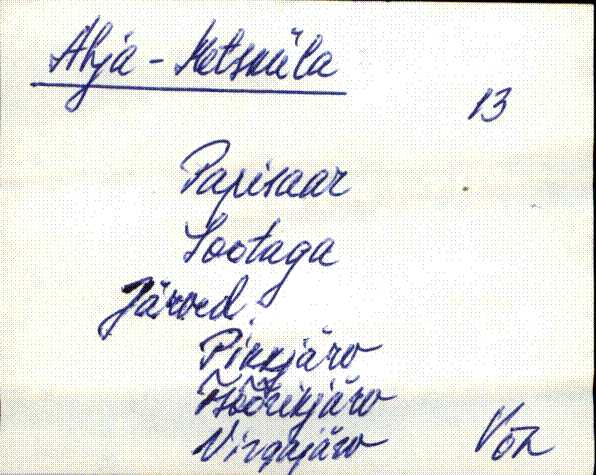 Ahja - Metsküla
13
Papisaar
Sootaga
Järved
Pikkjärv
Virgajärv Võn